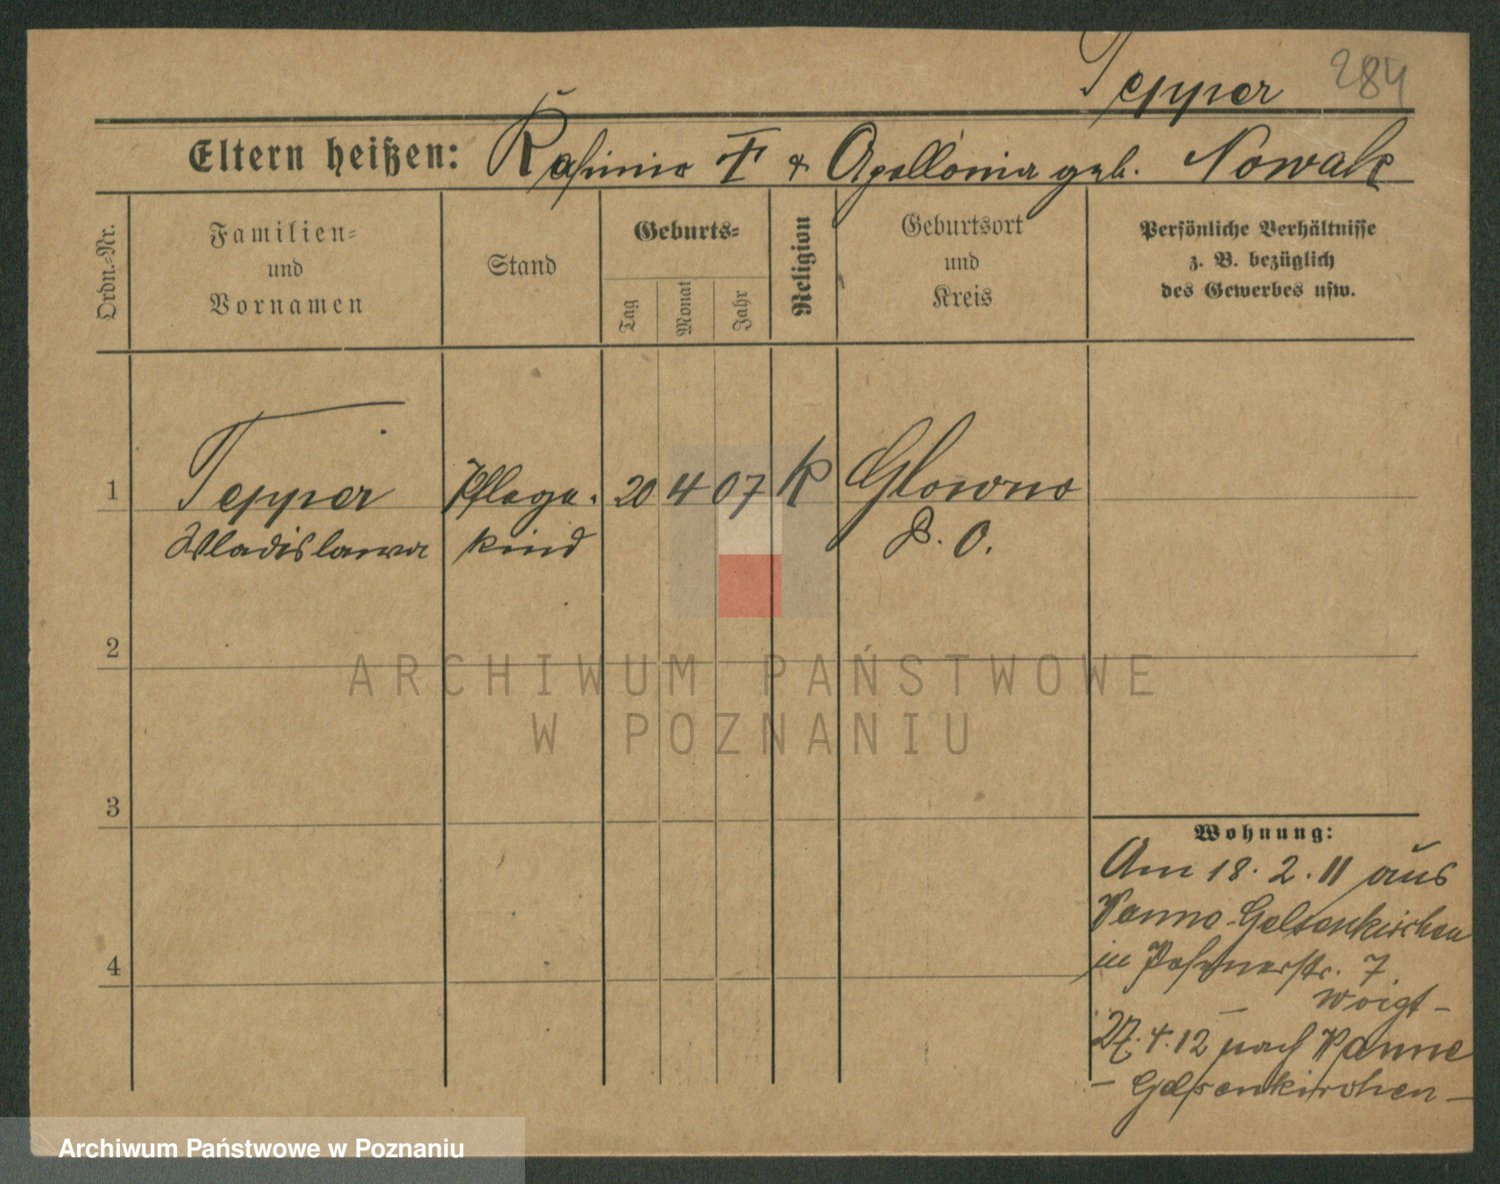 Tepper 284
Eltern heißen: Kasimir T & Apollonia geb. Nowak
Ordn.-Nr.
Familien-
und
Vornamen
Stand
Geburts-
Tag
Monat
Jahr
Religion
Geburtsort
und
Kreis
Persönliche Verhältnisse
z. B. bezüglich
des Gewerbes usw.
1 Tepper Pflege- 20 4 07 K Glowno
Wladislawa kind P. O.
2
ARCHIWUM PAŃSTWOWE
W POZNANIU
3
Wohnung:
Am 18. 2. 11 aus
Wanne-Gelsenkirchen
in Posenerstr. 7
Woigt-
4
27. 4. 12 nach Wanne
- Gelsenkirchen -
Archiwum Państwowe w Poznaniu